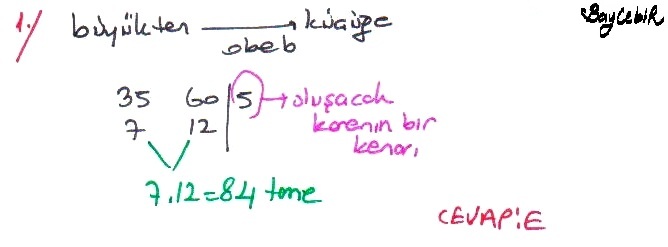 1.) büyükten → küçüğe
obeb
BayCebiR
35 60 | 5 → oluşacak
7 12 | karenin bir
kenarı
7.12=84 tane
CEVAP:E